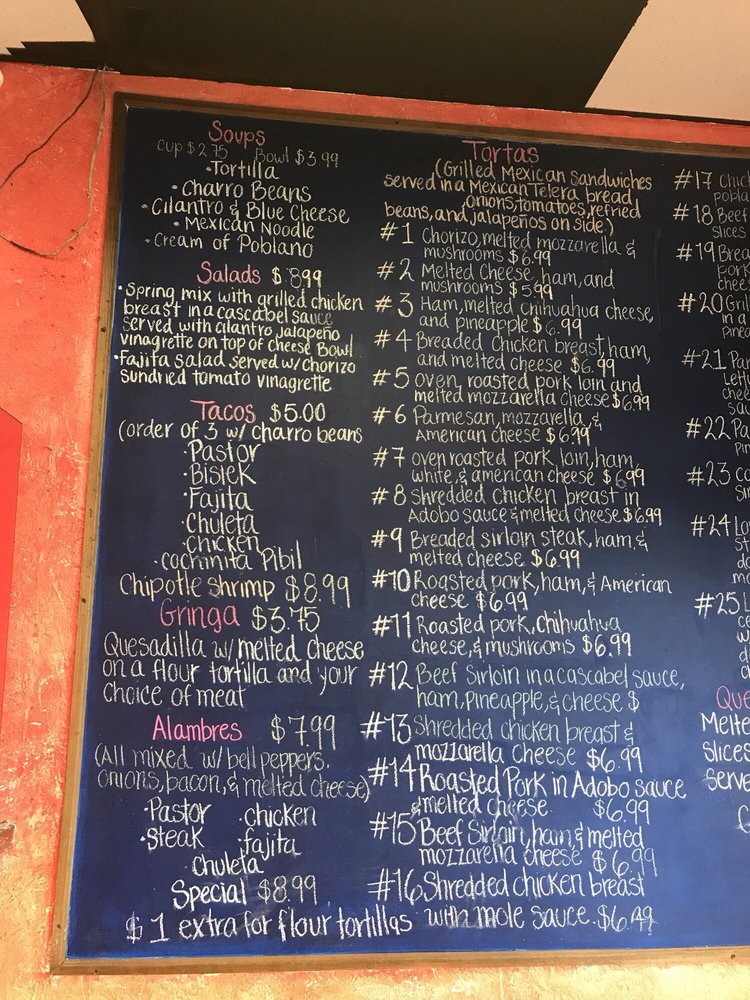 Soups
Cup $2.75 Bowl $3.99
·Tortilla
·Charro Beans
·Cilantro & Blue Cheese
·Mexican Noodle
·Cream of Poblano
Salads $8.99
·Spring mix with grilled chicken
breast in a cascabel sauce
served with cilantro jalapeño
vinagrette on top of cheese Bowl
·Fajita salad served w/ chorizo
sundried tomato vinagrette
Tacos $5.00
(order of 3 w/ charro beans
·Pastor
·Bistek
·Fajita
·Chuleta
·chicken
·cochinita Pibil
Chipotle shrimp $8.99
Gringa $3.75
Quesadilla w/ melted cheese
on a flour tortilla and your
choice of meat
Alambres $7.99
(All mixed w/ bell peppers.
onions, bacon, & melted cheese)
·Pastor ·chicken
·Steak ·fajita
Chuleta
Special $8.99
$1 extra for flour tortillas
Tortas
(Grilled Mexican sandwiches
served in a Mexican Telera bread
onions, tomatoes, refried
beans, and jalapeños on side.)
#1 Chorizo, melted mozzarella &
mushrooms $6.99
#2 Melted Cheese, ham, and
mushrooms $5.99
#3 Ham, melted chihuahua cheese,
and pineapple $6.99
#4 Breaded chicken breast, ham,
and melted cheese $6.99
#5 oven, roasted pork loin and
melted mozzarella cheese $6.99
#6 Parmesan, mozzarella, &
American cheese $6.99
#7 oven roasted pork, loin, ham,
white, & american cheese $6.99
#8 shredded chicken breast in
Adobo sauce & melted cheese $6.99
#9 Breaded sirloin steak, ham, &
melted cheese $6.99
#10 Roasted pork, ham, & American
cheese $6.99
#11 Roasted pork, Chihuahua
cheese, & mushrooms $6.99
#12 Beef Sirloin in a cascabel sauce,
ham, pineapple, & cheese $
#13 Shredded chicken breast &
mozzarella cheese $6.99
#14 Roasted Pork in Adobo sauce
& melted cheese $6.99
#15 Beef Sirloin, ham, & melted
mozzarella cheese $6.99
#16 Shredded chicken breast
with mole sauce. $6.49
#17
#18 Beef
slices
#19
#20
in a
#21
#22
#23
#24
#25
Melte
slices
serve